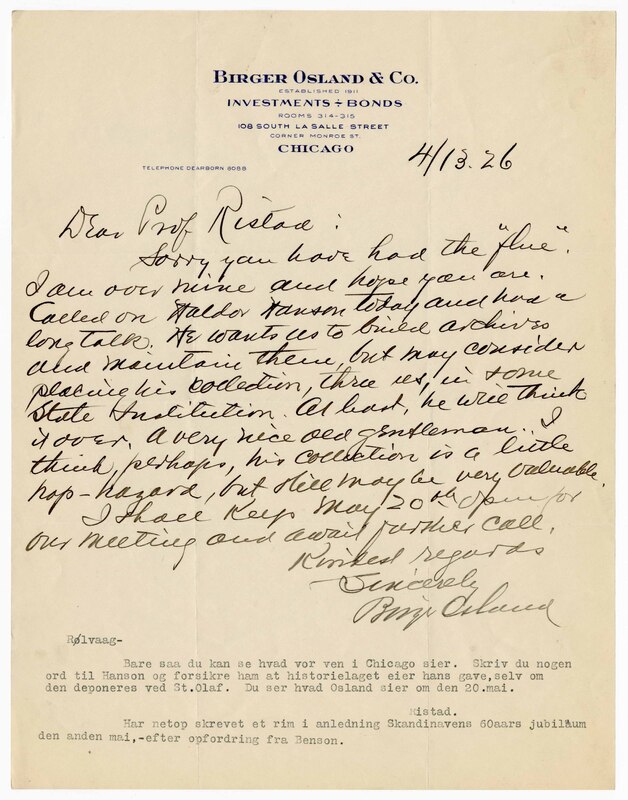 BIRGER OSLAND & CO.
ESTABLISHED 1911
INVESTMENTS ÷ BONDS
ROOMS 314-315
108 SOUTH LA SALLE STREET
CORNER MONROE ST.
CHICAGO
TELEPHONE DEARBORN 8088
4/13.26
Dear Prof Ristad:
Sorry you have had the "flue".
I am over mine and hope you are.
Called on Haldor Hanson today and had a
long talk. He wants us to build archives
and maintain them, but may consider
placing his collection, thru us, in some
State Institution. At least, he will think
it over. A very nice old gentleman. I
think, perhaps, his collection is a little
hap-hazard, but still may be very valuable.
I shall keep May 20th open for
our meeting and await further call.
Kindest regards
Sincerely
Birger Osland
Rølvaag-
Bare saa du kan se hvad vor ven i Chicago sier. Skriv du nogen
ord til Hanson og forsikre ham at historielaget eier hans gave,selv om
den deponeres ved St.Olaf. Du ser hvad Osland sier om den 20.mai.
Ristad.
Har netop skrevet et rim i anledning Skandinavens 60aars jubilæum
den anden mai,-efter opfordring fra Benson.